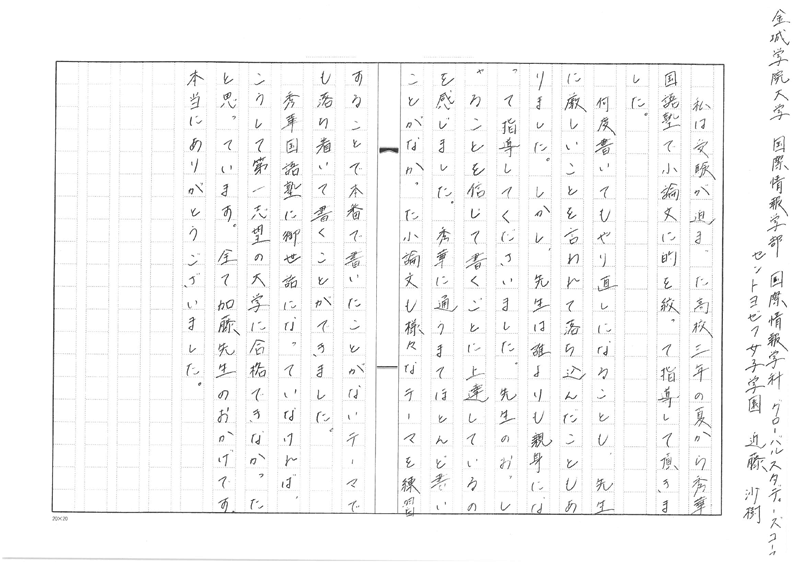 金城学院大学 国際情報学部 国際情報学科 グローバルスタディーズコース
セントヨゼフ女子学園 近藤 沙樹
私は受験が迫まった高校三年の夏から秀華
国語塾で小論文に的を絞って指導して頂きま
した。
何度書いてもやり直しになることも、先生
に厳しいことを言われて落ち込んだこともあ
りました。しかし、先生は誰よりも親身にな
って指導してくださいました。先生のおっし
ゃることを信じて書くごとに上達しているの
を感じました。秀華に通うまでほとんど書い
たことがなかった小論文も様々なテーマを練習
することで本番で書いたことがないテーマで
も落ち着いて書くことができました。
秀華国語塾に御世話になっていなければ、
こうして第一志望の大学に合格できなかった
と思っています。全て加藤先生のおかげです。
本当にありがとうございました。
20×20